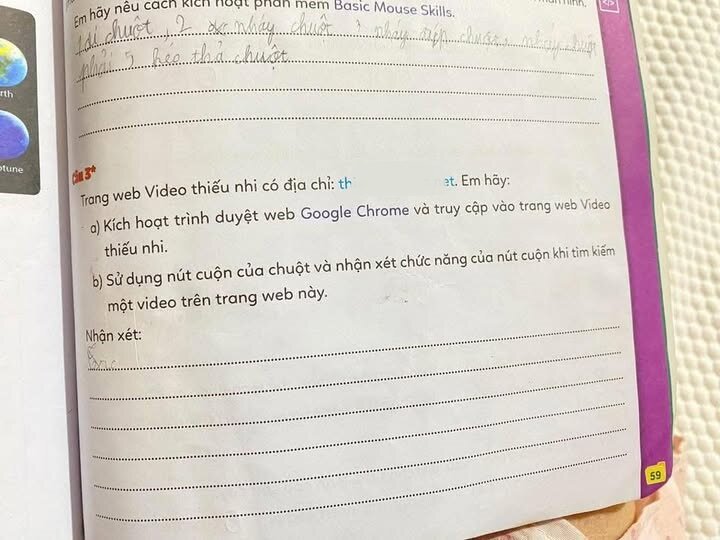 Em hãy nêu cách kích hoạt phần mềm Basic Mouse Skills.
chuột, 2 nháy chuột 3 nháy đúp chuột, nháy chuột
phải 5 kéo thả chuột
rth
Câu 3*
ptune
Trang web Video thiếu nhi có địa chỉ: th et. Em hãy:
a) Kích hoạt trình duyệt web Google Chrome và truy cập vào trang web Video
thiếu nhi.
b) Sử dụng nút cuộn của chuột và nhận xét chức năng của nút cuộn khi tìm kiếm
một video trên trang web này.
Nhận xét:
59